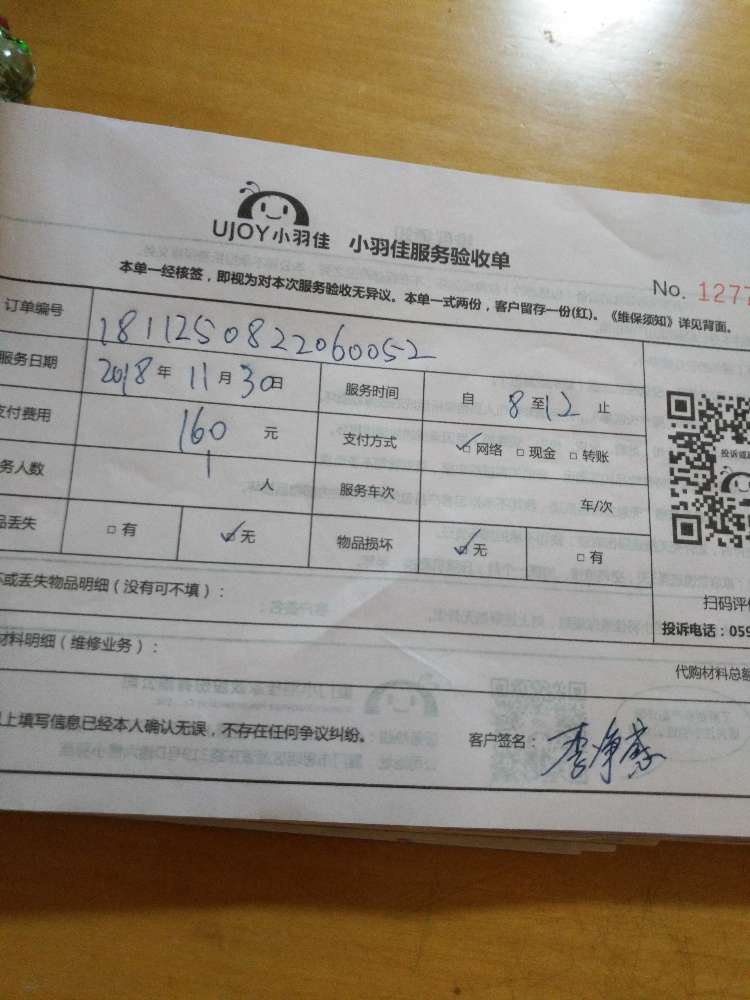 UJOY小羽佳 小羽佳服务验收单
No. 1277
本单一经核签，即视为对本次服务验收无异议。本单一式两份，客户留存一份(红)。《维保须知》详见背面。
订单编号 1811250822060052
服务日期 2018年 11月 30日 服务时间 自 8 至 12 止
支付费用 160 元 支付方式 ☑网络 □现金 □转账
务人数 1 人 服务车次 车/次
品丢失 □有 ☑无 物品损坏 ☑无 □有
投诉或
扫码评
坏或丢失物品明细（没有可不填）：
投诉电话：059
材料明细（维修业务）：
代购材料总额
以上填写信息已经本人确认无误，不存在任何争议纠纷。
客户签名：李